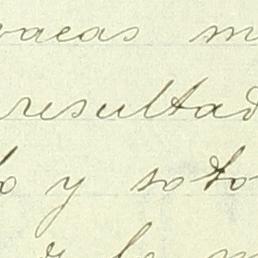 vacas m
resultad
o y soto